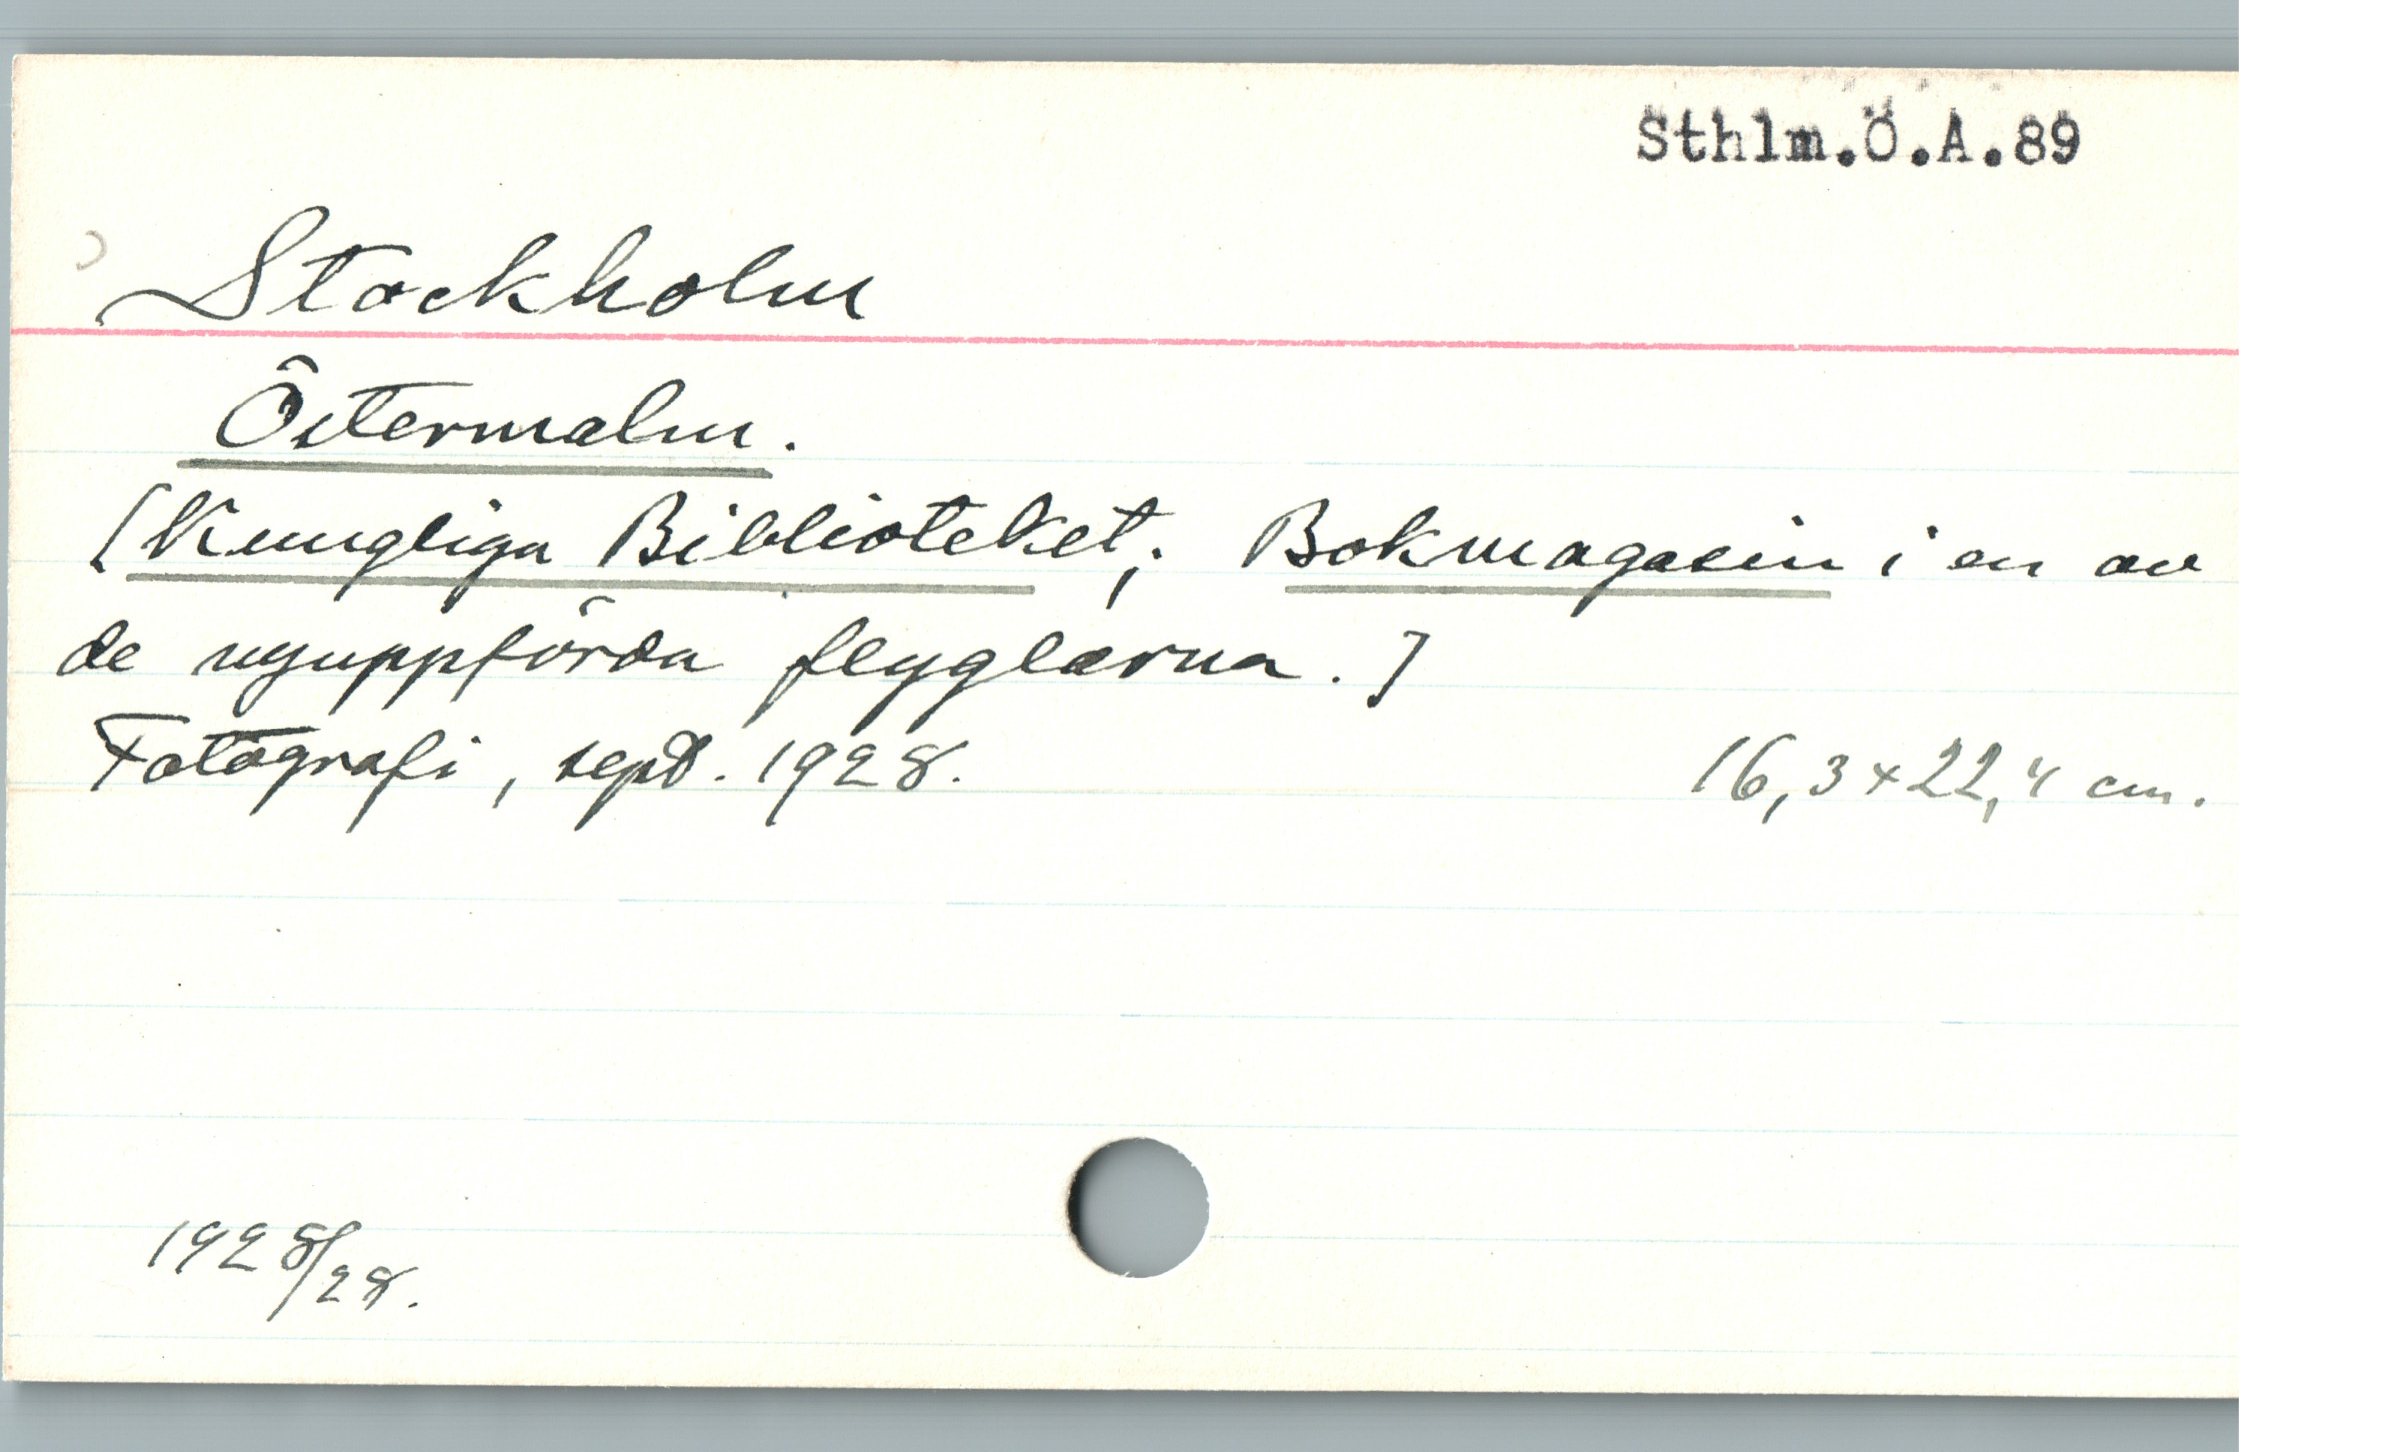 Sthlm.Ö.A.89
Stockholm
Östermalm.
[Kungliga Biblioteket; Bokmagasin i en av
de nyuppförda flyglarna.]
Fotografi, sept. 1928. 16,3 x 22,4 cm.
1928/28.